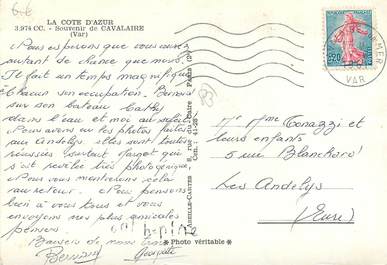 LA COTE D'AZUR
3.974 CC. - Souvenir de CAVALAIRE
(Var)
Nous espérons que vous aurez
autant de chance que nous.
Il fait un temps magnifique
Chacun son occupation. Bernard
sur son bateau Cathy
dans l'eau et moi au soleil.
Nous avons eu les photos faites
aux Andelys elles sont toutes
réussies surtout Margot qui
s'est révélée très photogénique.
Nous vous montrerons cela
au retour. Nous pensons
bien à vous tous et vous
envoyons nos plus amicales
pensées.
Baisers de nous trois
Bernard
ABEILLE-CARTES - 8, rue du Caire - Paris (2e)
Cté. : 41-28
★ Photo véritable ★
MER
VAR
0,20
Mr Mme Tonazzi et
leurs enfants
5 rue Blanchard
Les Andelys
(Eure)